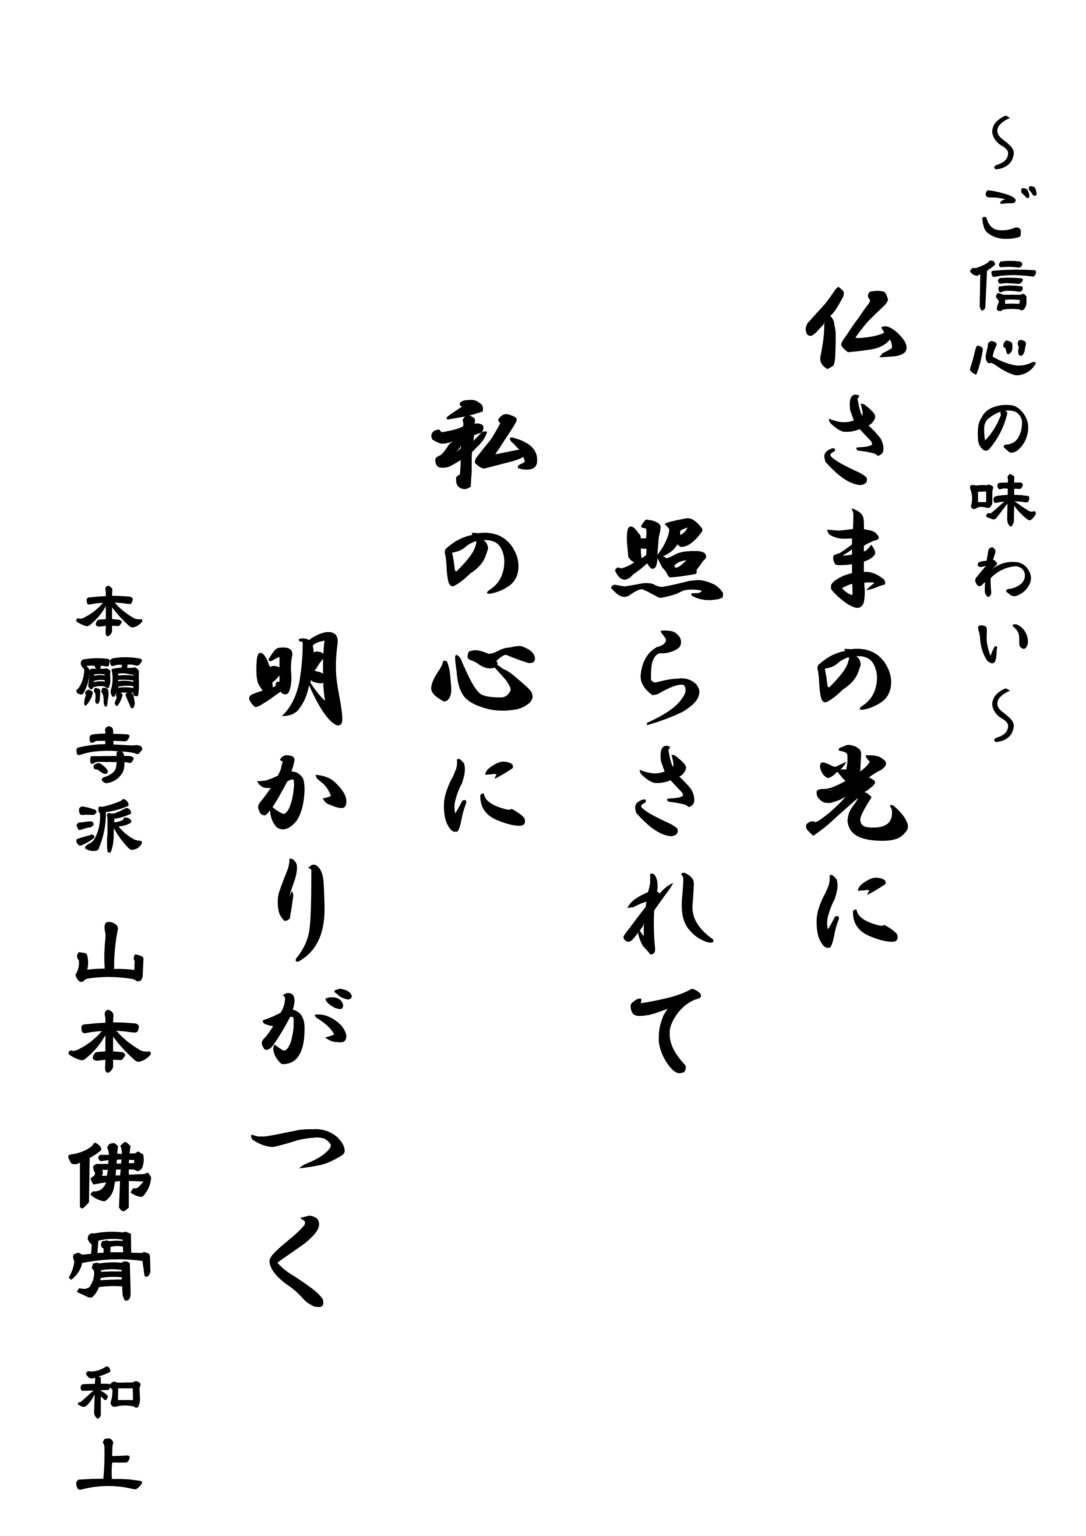 ～ご信心の味わい～
仏さまの光に
照らされて
私の心に
明かりがつく
本願寺派 山本 佛骨 和上